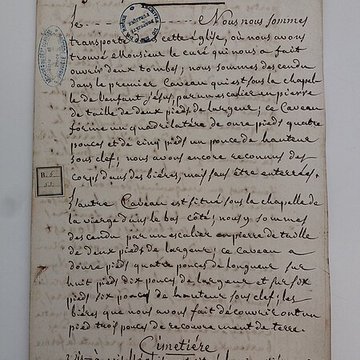 Le ............ Nous nous sommes
transporté dans cette église, où nous avons
trouvé Monsieur le curé qui nous a fait
ouvrir deux tombes; nous sommes descendu
dans le premier Caveau qui est sous la chapel-
le de l'enfant jésus, par un escalier en pierre
de taille de deux pieds de largeur; ce Caveau
forme un quadrilatère de onze pieds quatre
pouces et de cinq pieds un pouce de hauteur
sous clef; nous avons encore reconnus des
corps dans des bières, mais sans être enterrées.
L'autre Caveau est situé sous la chapelle de
la vierge dans le bas côté; nous y sommes
descendu par un escalier en pierre de taille
de deux pieds de largeur; ce caveau a
douze pieds quatre pouces de longueur sur
huit pieds dix pouces de largeur et sur six
pieds six pouces de hauteur sous clef; les
bières que nous avons fait découvrir ont un
pied trois pouces de recouvrement de terre.
Cimetière